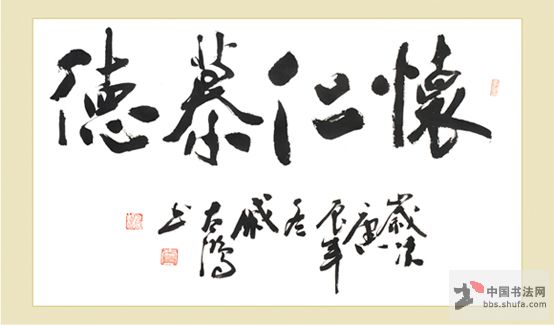 懷仁慕德
歲次
庚
辰年
冬
戚
上
中国书法网
bbs.shufa.com